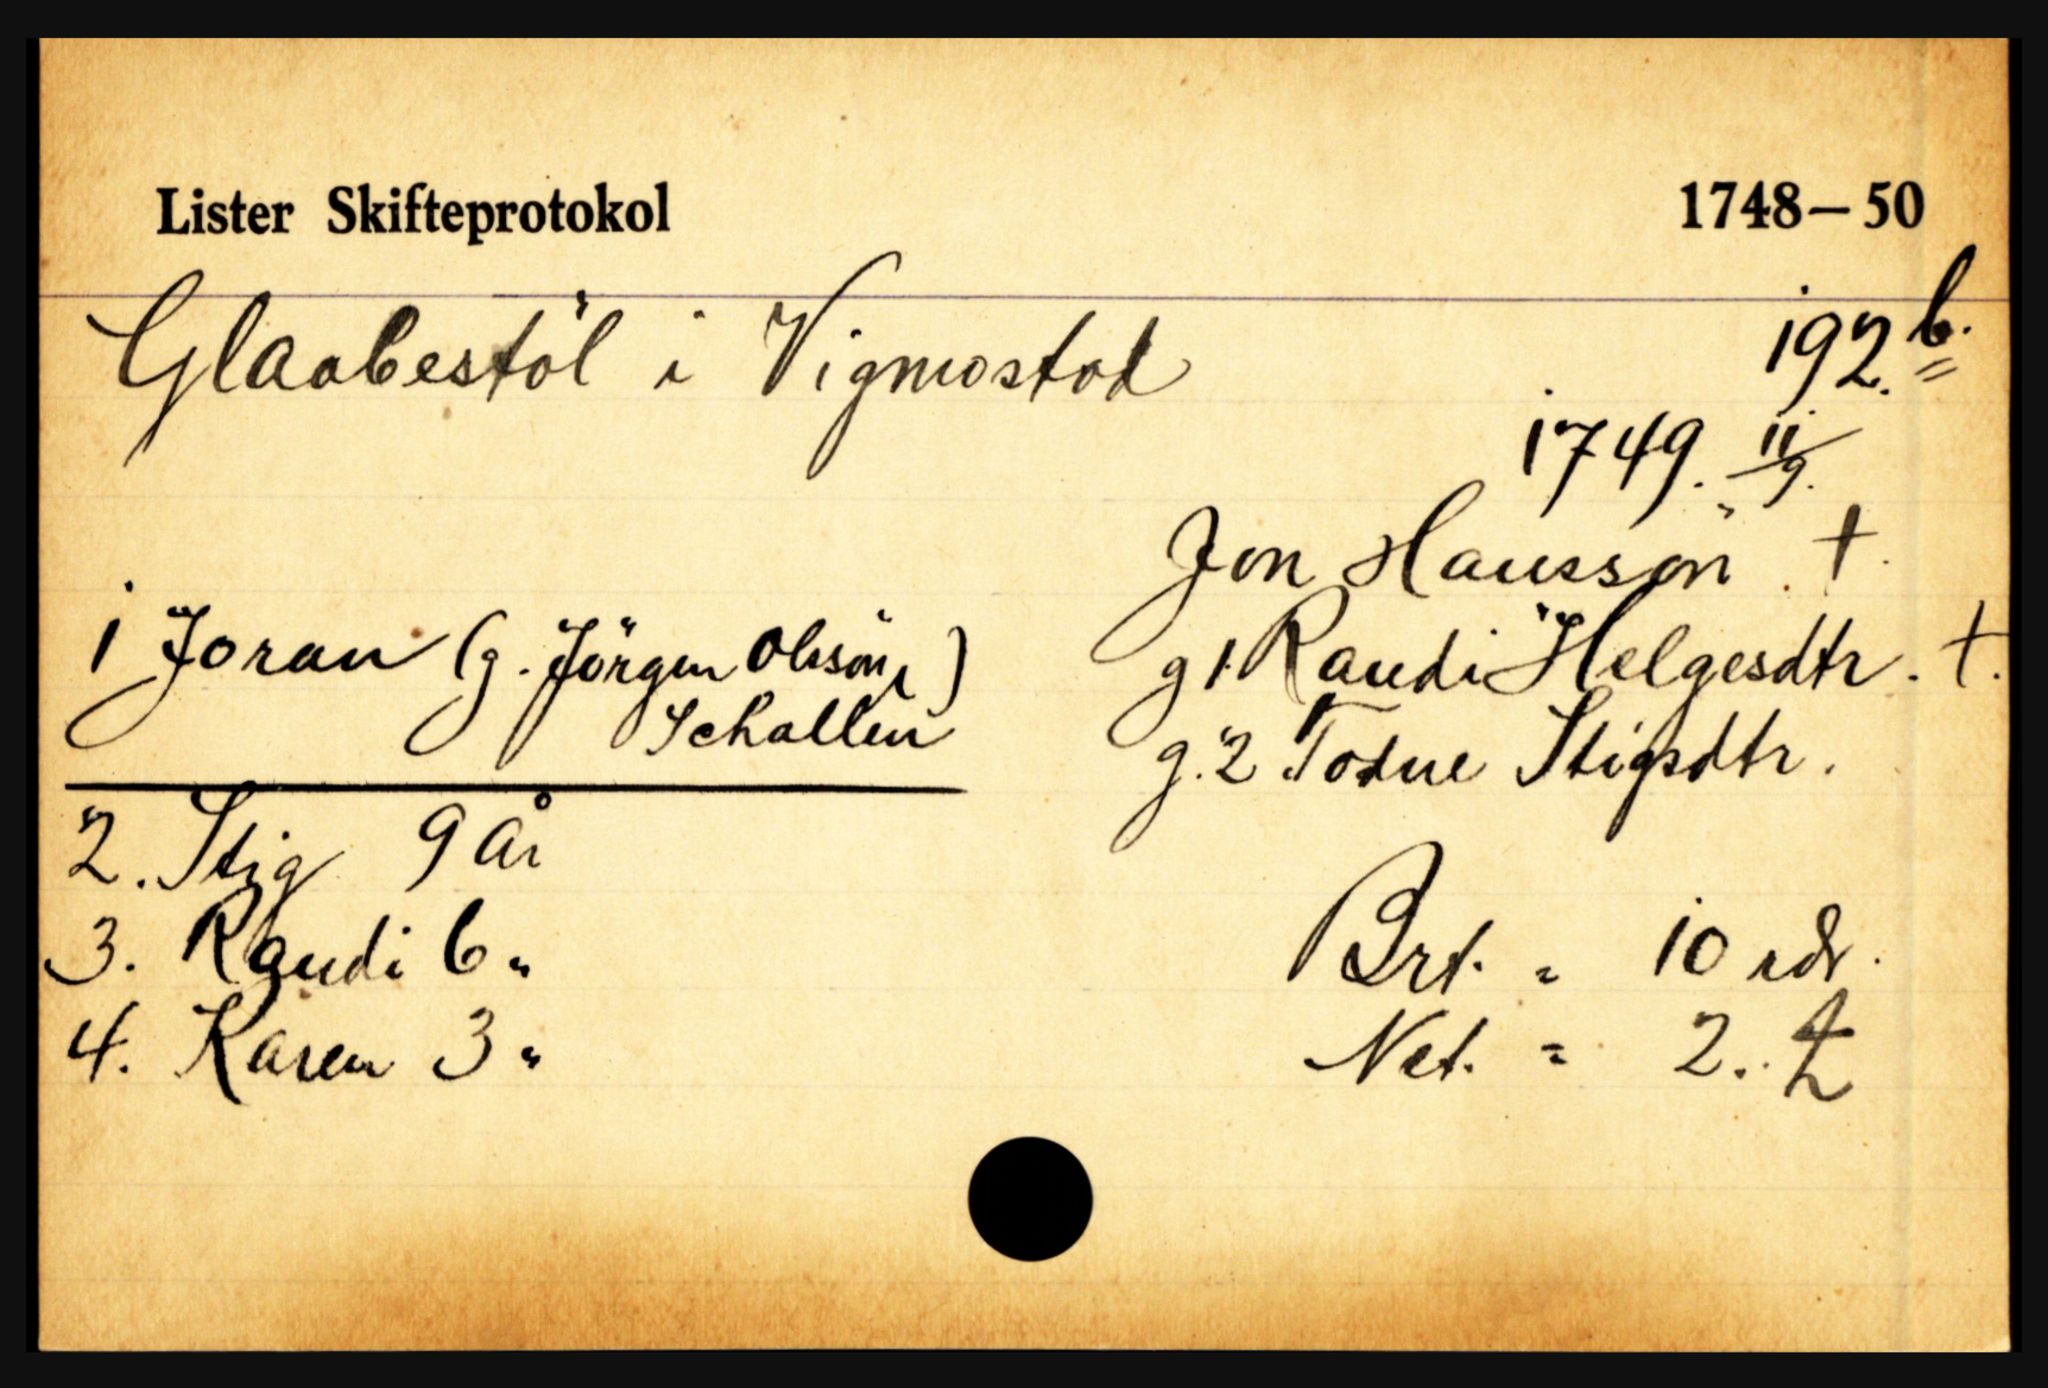 Lister Skifteprotokol 1748—50
Glaabestöl i Vigmostad 192.b.
1749. 11/9.
Jon Hansson †.
1 Joran (g. Jörgen Olsson, g 1. Randi Helgesdtr. †.
Schallen) g. 2 Todne Stigsdtr.
2. Stig 9 År
3. Randi 6 "
4. Karen 3 "
Brt. = 10 rdr.
Net. = 2.